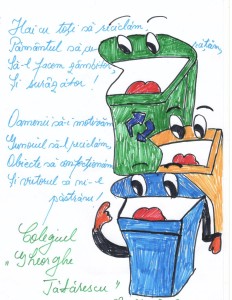 Hai cu toții să reciclăm,
Pământul să-l curățăm,
Să-l facem zâmbitor,
Și surâzător!
Oamenii să-i motivăm
Gunoiul să-l reciclăm,
Obiecte să confecționăm
Și viitorul să ni-l
păstrăm!
Colegiul
"Gheorghe
Tătărescu"